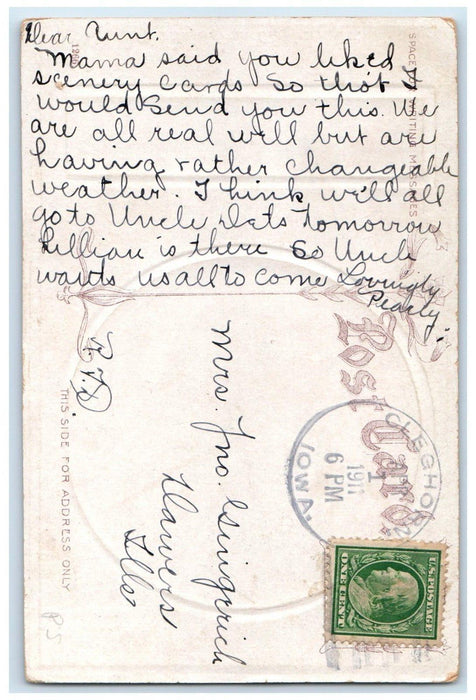 Dear Aunt.
Mama said you liked
scenery cards so thot I
would send you this. We
are all real will but are
having rather changeable
weather. I think we'll all
go to Uncle Dets tomorrow
Lillian is there so Uncle
wants us all to come Lovingly
Pearly.
SPACE WRITING MESSAGES
Post Card
CLEGHORN
IOWA.
1
1911
6 PM
U.S. POSTAGE
ONE CENT
Mrs. Jno. Gingerich
Ills
R.F.D.
THIS SIDE FOR ADDRESS ONLY